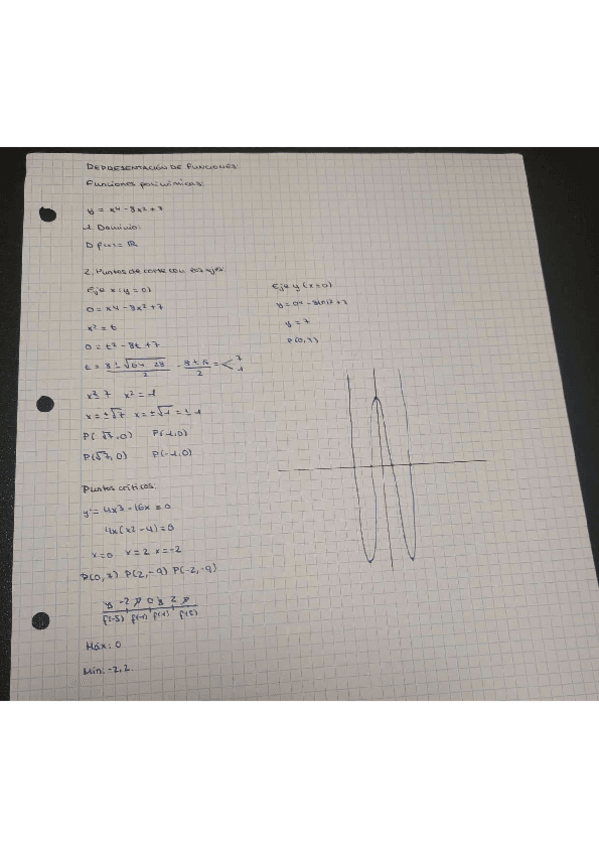 REPRESENTACIÓN DE FUNCIONES:
Funciones polinómicas:
y = x4 - 8x2 + 7
1. Dominio:
D f(x) = ℝ
2. Puntos de corte con los ejes:
Eje x (y = 0)
0 = x4 - 8x2 + 7
x2 = t
0 = t2 - 8t + 7
t = 8 ± √64 - 28 / 2 = 8 ± 6 / 2 = < 7 1
x2 = 7 x2 = 1
x = ±√7 x = ±√1 = ±1
P(√7, 0) P(1, 0)
P(√7, 0) P(-1, 0)
Eje y (x = 0)
y = 04 - 8(0)2 + 7
y = 7
P(0, 7)
Puntos críticos:
y' = 4x3 - 16x = 0
4x(x2 - 4) = 0
x = 0 x = 2 x = -2
P(0, 7) P(2, -9) P(-2, -9)
-2 0 2
f'(-3) f'(-1) f'(1) f'(3)
Máx: 0
Mín: -2, 2.